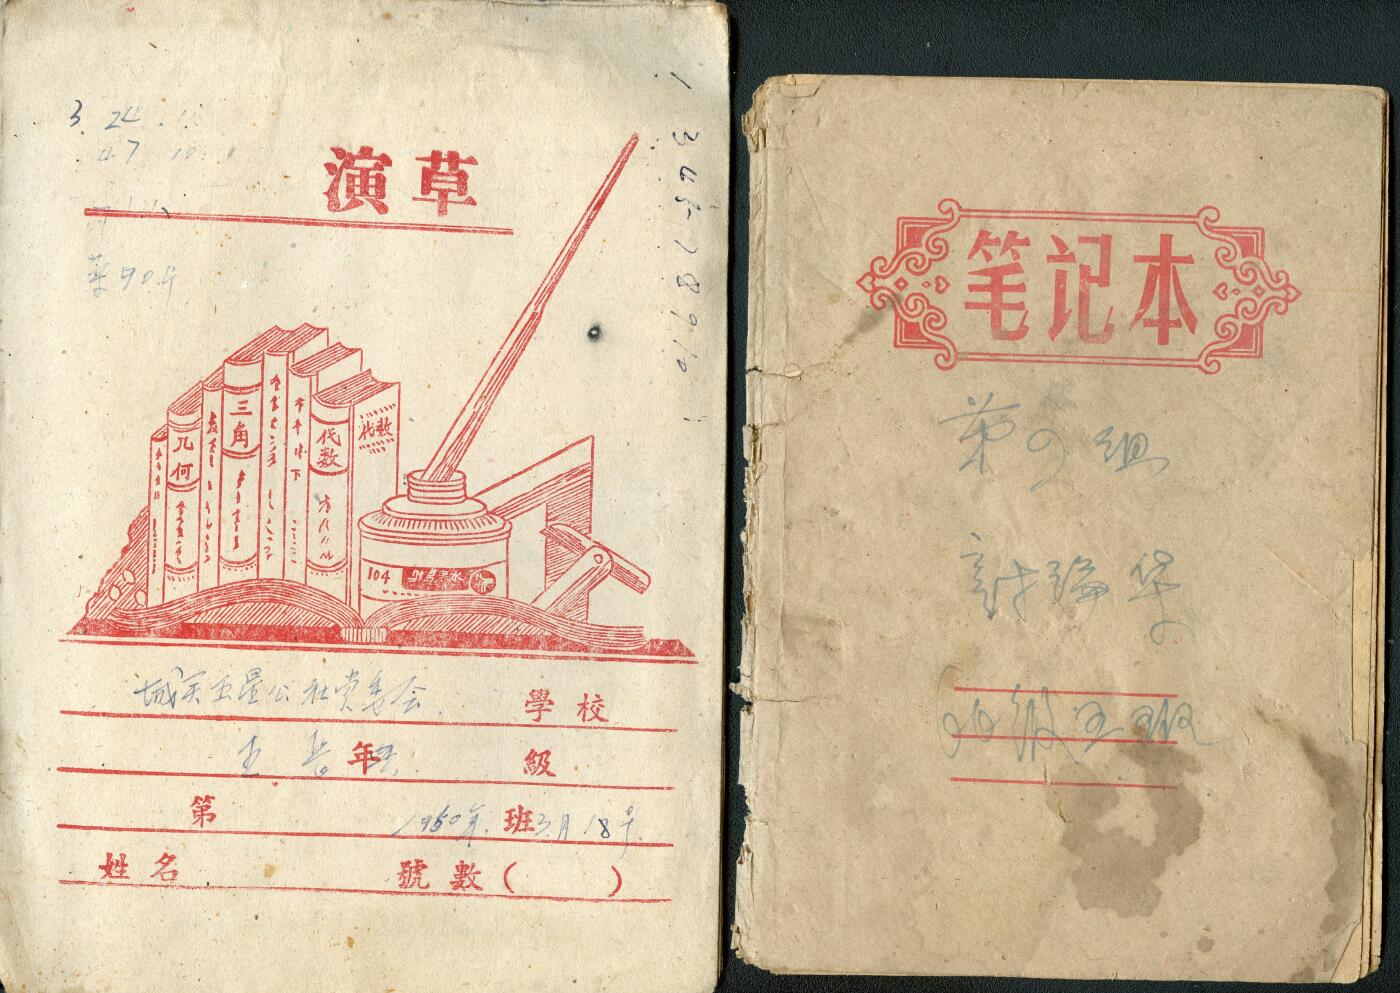 3 24
47
演草
菜90斤
1 3 4 5 - 7 8 9 10
几何
三角
代数
代数
104
城关五星公社党委会 學校
王 年 級
第 1960年 班 3月18号
姓名 號數( )
笔记本
第四组
討論
四级五班